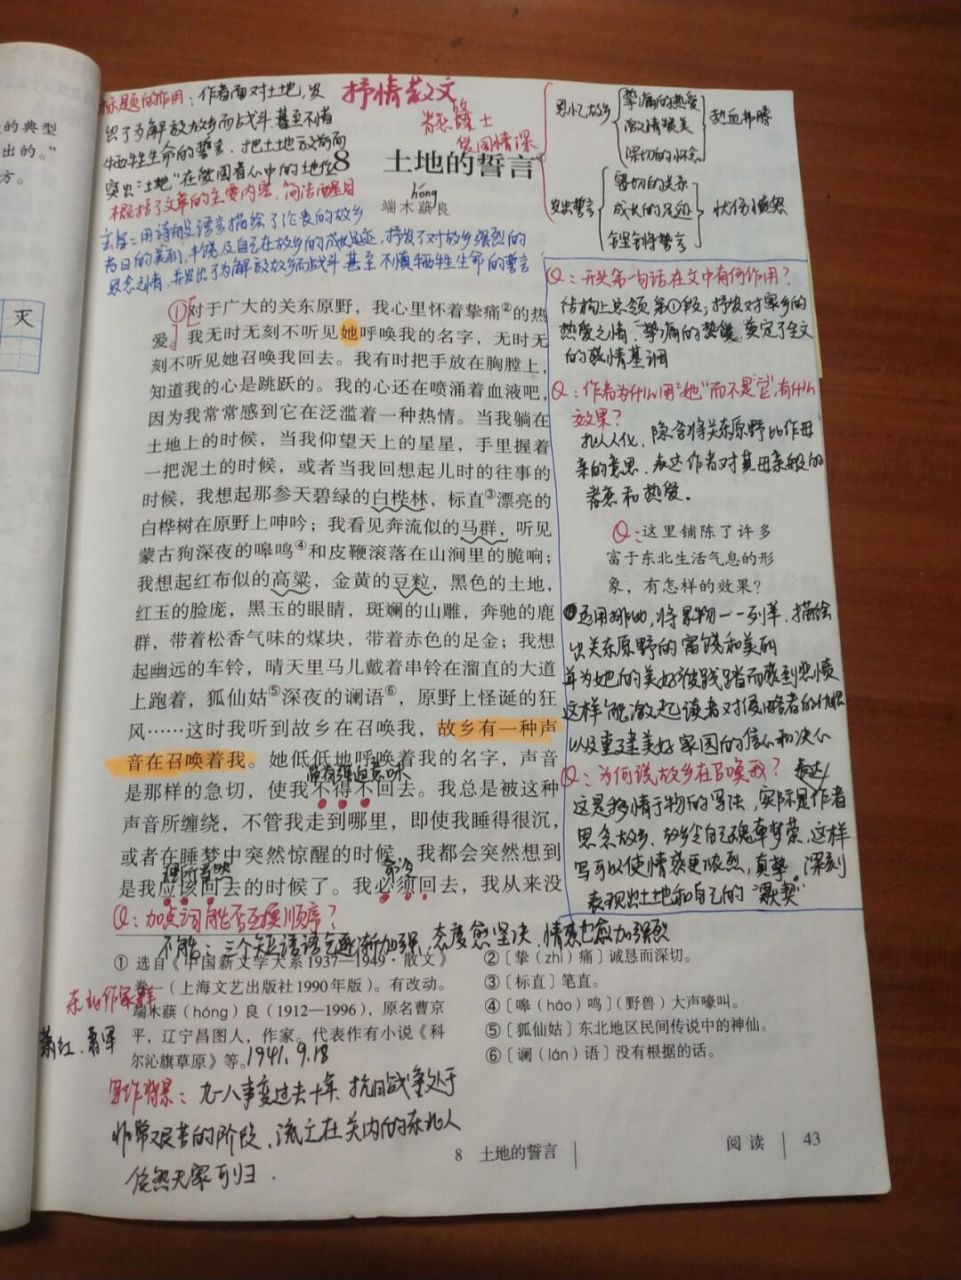 的典型
出的。”
方。
灭
标题的作用：作者面对土地，发
出了为解放故乡而战斗，甚至不惜
牺牲生命的誓言．把土地放前面
突出“土地”在爱国者心中的地位
概括了文章的主要内容，简洁醒目
主旨：用诗般语言描绘了沦丧的故乡
昔日的美丽、丰饶及自己在故乡的成长足迹，抒发了对故乡强烈的
思念之情，并发出了为解放故乡而战斗甚至不惜牺牲生命的誓言
抒情散文
爱国情深
思忆故乡
挚痛的热爱
激情赞美
深切的怀念
热血沸腾
发出誓言
密切的关系
成长的足迹
铿锵誓言
8 土地的誓言
hóng
端木蕻良
①对于广大的关东原野，我心里怀着挚痛②的热
爱。我无时无刻不听见她呼唤我的名字，无时无
刻不听见她召唤我回去。我有时把手放在胸膛上，
知道我的心是跳跃的。我的心还在喷涌着血液吧，
因为我常常感到它在泛滥着一种热情。当我躺在
土地上的时候，当我仰望天上的星星，手里握着
一把泥土的时候，或者当我回想起儿时的往事的
时候，我想起那参天碧绿的白桦林，标直③漂亮的
白桦树在原野上呻吟；我看见奔流似的马群，听见
蒙古狗深夜的嗥鸣④和皮鞭滚落在山涧里的脆响；
我想起红布似的高粱，金黄的豆粒，黑色的土地，
红玉的脸庞，黑玉的眼睛，斑斓的山雕，奔驰的鹿
群，带着松香气味的煤块，带着赤色的足金；我想
起幽远的车铃，晴天里马儿戴着串铃在溜直的大道
上跑着，狐仙姑⑤深夜的谰语⑥，原野上怪诞的狂
风……这时我听到故乡在召唤我，故乡有一种声
音在召唤着我。她低低地呼唤着我的名字，声音
带有强迫意味
是那样的急切，使我不得不回去。我总是被这种
声音所缠绕，不管我走到哪里，即使我睡得很沉，
或者在睡梦中突然惊醒的时候，我都会突然想到
理所当然
命令
是我应该回去的时候了。我必须回去，我从来没
Q：加点词能否互换顺序？
不能：三个短语语气逐渐加强，态度愈坚决，情感也愈加强烈
Q：开头第一句话在文中有何作用？
结构上总领第①段；抒发对家乡的
热爱之情“挚痛的热爱”奠定了全文
的感情基调
Q：作者为什么用“她”而不是“它”，有什么
效果？
拟人化，隐含将关东原野比作母
亲的意思，表达作者对其母亲般的
眷恋和热爱。
Q：这里铺陈了许多
富于东北生活气息的形
象，有怎样的效果？
运用排比，将景物一一列举，描绘
出关东原野的富饶和美丽
并为她的美好被践踏而感到悲愤
这样能激起读者对侵略者的仇恨
以及重建美好家园的信心和决心
Q：为何说故乡在召唤我？
这是移情于物的写法，实际是作者表达
思念故乡，故乡令自己魂牵梦萦，这样
写可以使情感更浓烈，真挚，深刻
表现出土地和自己的“默契”
① 选自《中国新文学大系1937—1949·散文
卷一（上海文艺出版社1990年版）。有改动。
端木蕻（hóng）良（1912—1996），原名曹京
平，辽宁昌图人，作家。代表作有小说《科
尔沁旗草原》等。
1941、9.18
② ［挚（zhì）痛］诚恳而深切。
③ ［标直］笔直。
④ ［嗥（háo）鸣］（野兽）大声嚎叫。
⑤ ［狐仙姑］东北地区民间传说中的神仙。
⑥ ［谰（lán）语］没有根据的话。
东北作家群
萧红、萧军
写作背景：九一八事变过去十年，抗日战争处于
非常艰苦的阶段，流亡在关内的东北人
依然无家可归．
8 土地的誓言
阅读 43